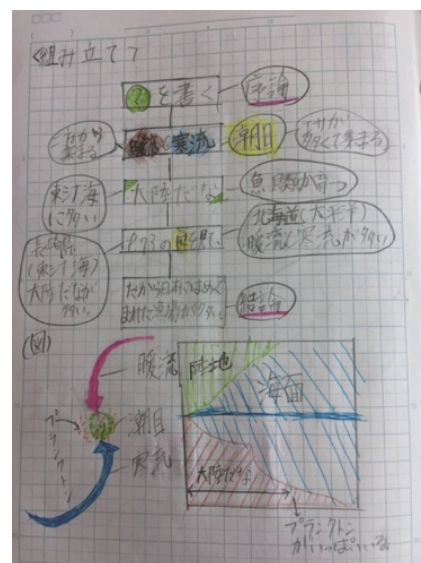 <組み立て>
?を書く
序論
二方から
集まる
暖流 寒流
潮目
エサが
多くて集まる
東シナ海
に多い
大陸だな
魚 貝類が育つ
P.73の図を見て、
北海道(太平洋)
暖流と寒流が多い
長崎県
(東シナ海)
大陸だなが
多い。
だから日本にはめぐ
まれた漁場が多い。
結論
(図)
暖流
潮目
寒流
プランクトン
陸地
海面
大陸だな
プランクトン
がいっぱいいる。